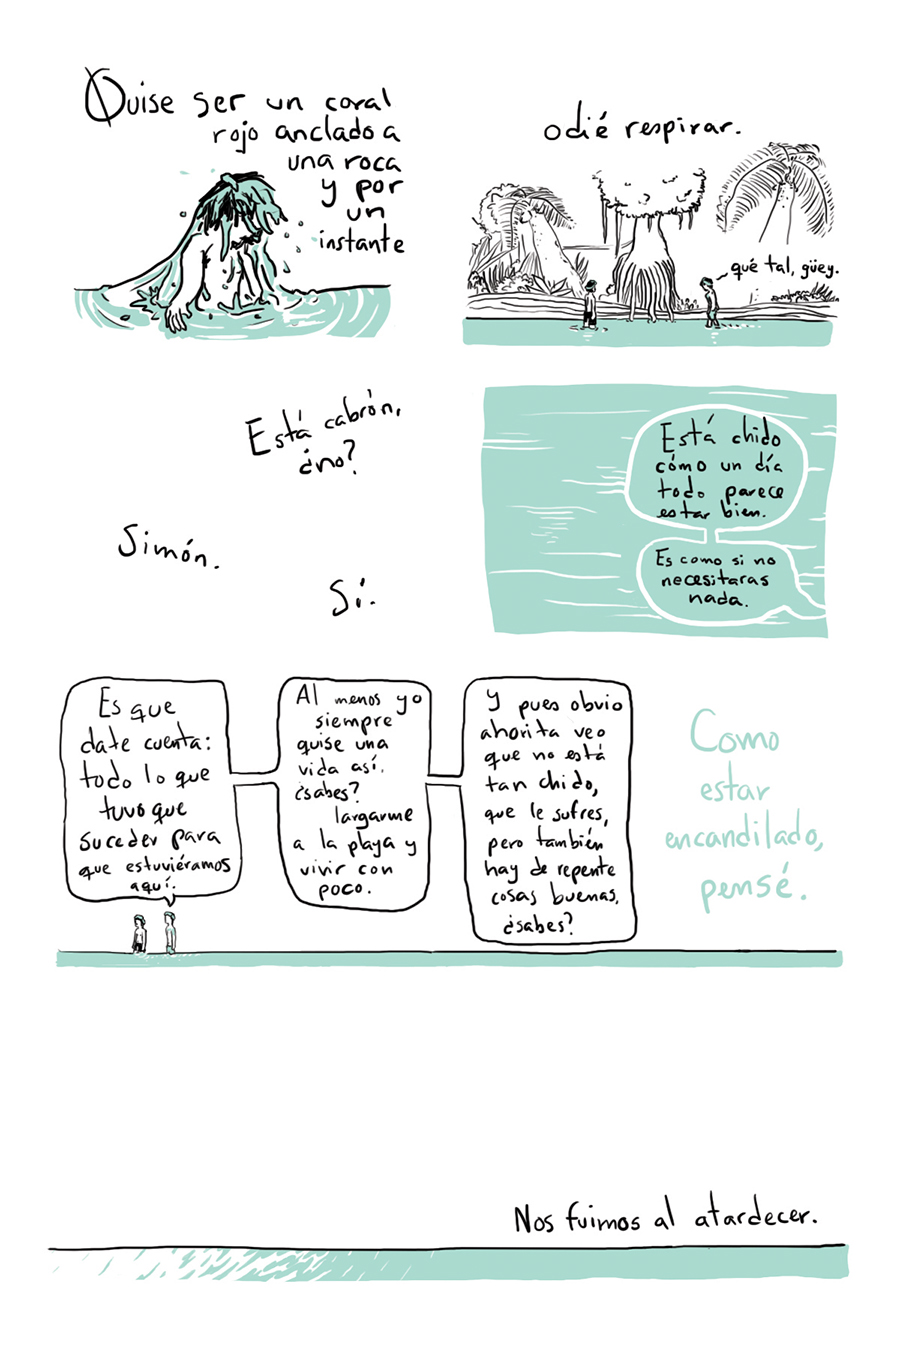 Quise ser un coral
rojo anclado a
una roca
y por
un
instante
odié respirar.
qué tal, güey.
Está cabrón,
¿no?
Simón.
Sí.
Está chido
cómo un día
todo parece
estar bien.
Es como si no
necesitaras
nada.
Es que
date cuenta:
todo lo que
tuvo que
suceder para
que estuviéramos
aquí.
Al menos yo
siempre
quise una
vida así,
¿sabes?
largarme
a la playa y
vivir con
poco.
Y pues obvio
ahorita veo
que no está
tan chido,
que le sufres,
pero también
hay de repente
cosas buenas,
¿sabes?
Como
estar
encandilado,
pensé.
Nos fuimos al atardecer.